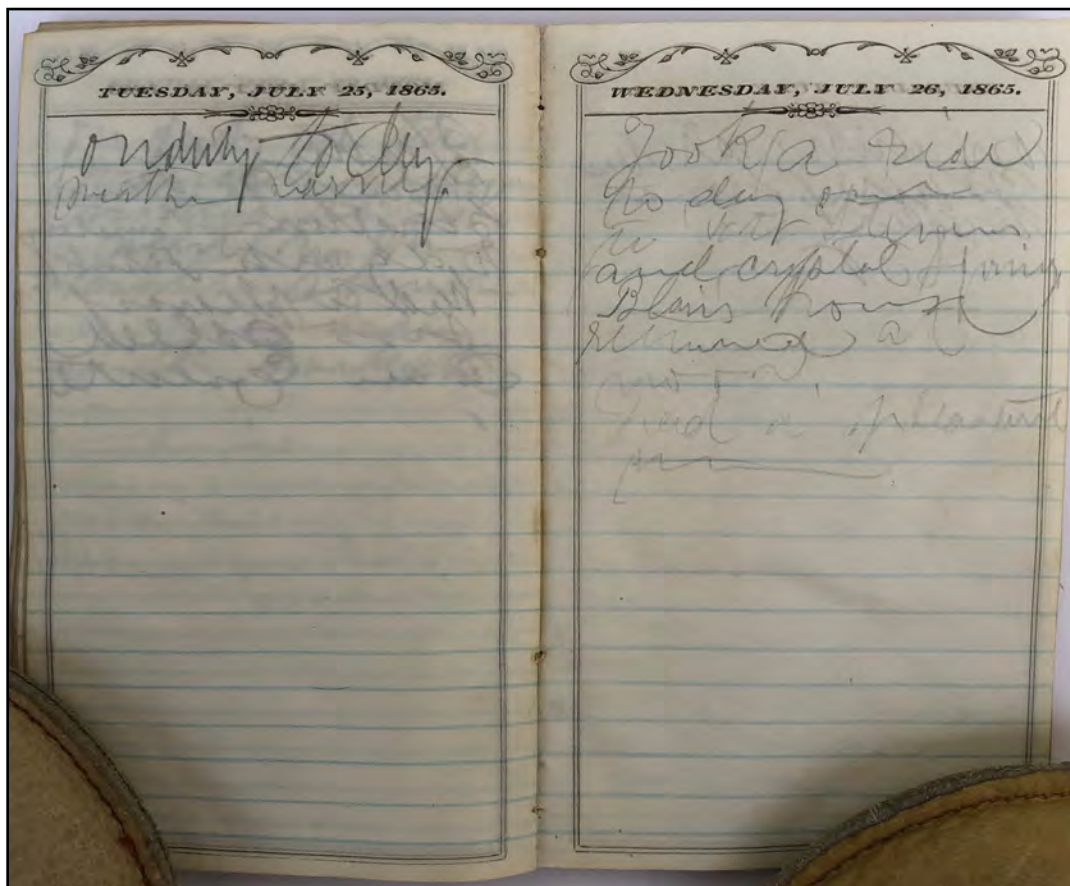 TUESDAY, JULY 25, 1865.
on duty to day
weather warm
WEDNESDAY, JULY 26, 1865.
Took a ride
to day
to Fort Stevens
and cryptal Spring
Blairs house
returned a
noon
had a pleasant